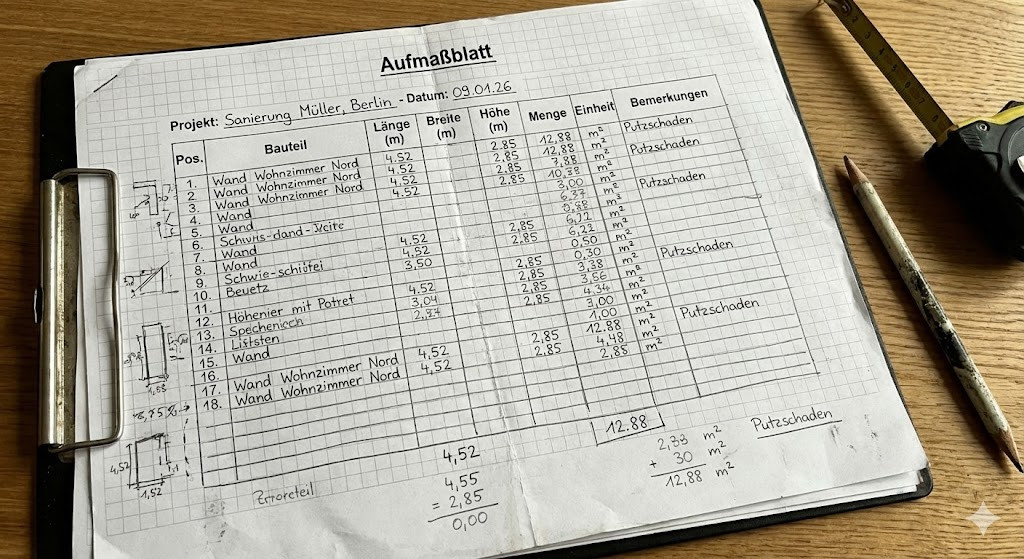 Aufmaßblatt
Projekt: Sanierung Müller, Berlin - Datum: 09.01.26
Pos. Bauteil Länge (m) Breite (m) Höhe (m) Menge Einheit Bemerkungen
1. Wand Wohnzimmer Nord 4.52 2.85 12,88 m² Putzschaden
2. Wand Wohnzimmer Nord 4.52 2,85 12,88 m²
3. Wand Wohnzimmer Nord 4.52 2,85 m² Putzschaden
4. Wand 4.52 2,85 10,38 m²
5. Wand 3,00 m²
6. m² Putzschaden
7. Wand 4.52 2,85 m²
8. Wand 4.52 2,85 6,22 m²
9. 3,50 0,50 m²
10. 2,85 0,30 m² Putzschaden
11. 4,52 2,85 3,38 m²
12. Höhenier mit Potret 3,04 2,85 3,56 m²
13. 4,34 m²
14. Liststen 3,00 m² Putzschaden
15. Wand 1,00 m²
16. 4,52 2,85 12.88 m²
17. Wand Wohnzimmer Nord 4,52 2,85 4,48 m²
18. Wand Wohnzimmer Nord 2,85 m²
12.88
4,52
4,55
= 2,85
0,00
2,33 m²
+ 30 m²
12,88 m²
Putzschaden
1,53
4,52
1,52